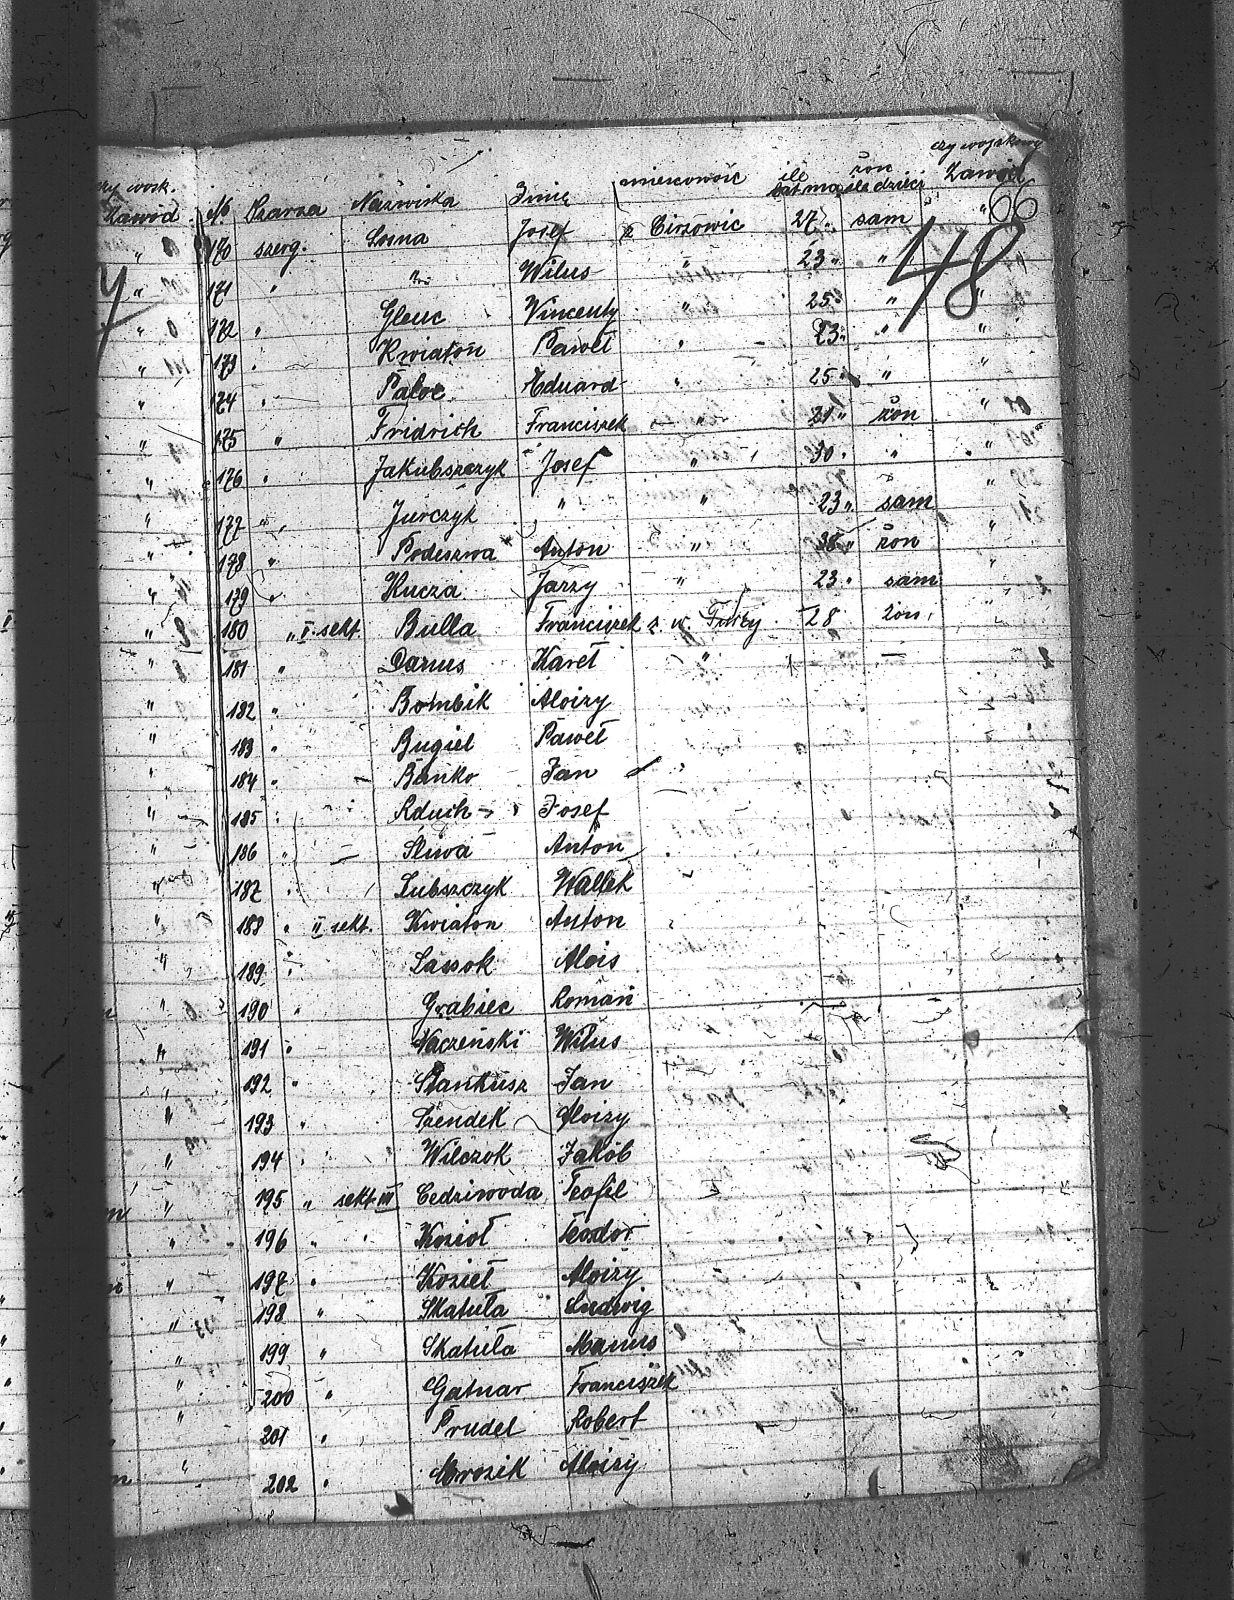 czy wojskowy
miescowość ile żon
czy wojsk. Nazwiska Imię lat ma ile dzieci Zawód
Zawód Szarza 66
170 szerg. Sosna Josef z Cirzowic 27 " sam "
48
171 " " Wilus " 23 " "
172 " Glenc Vincenty " 25 " " "
173 " Kwiaton Paweł " 23 " " "
174 " Paloc Eduard " 25 " " "
175 " Fridrich Franciszek " 21 " żon "
176 " Jakubszczyk Josef " 30 " " "
177 " Jurczyk " " 23 " sam "
178 " Podeszwa Anton " 38 " żon "
179 " Kucza Jarzy " 23 " sam "
180 " I sekt. Bulla Franciszek z. w. 28 żon "
181 " Darius Kareł "
182 " Bombik Aloizy
183 " Bugiel Paweł
184 " Banko Jan
185 " Rduch Josef
186 " Śliwa Anton
187 " Lubszczyk Wallek
188 " II sekt. Kwiaton Anton
189 " Lassok Alois
190 " Grabiec Roman
191 " Naczeński Wilus
192 " Stankusz Jan
193 " Szendek Aloizy
194 " Wilczok Jakob
195 " sekt III Cedziwoda Teofil
196 " Kozioł Teodor
197 " Kozieł Aloizy
198 " Skatuła Ludwig
199 " Skatuła
200 " Gatnar Franciszek
201 " Prudel Robert
202 " Mrozik Aloizy